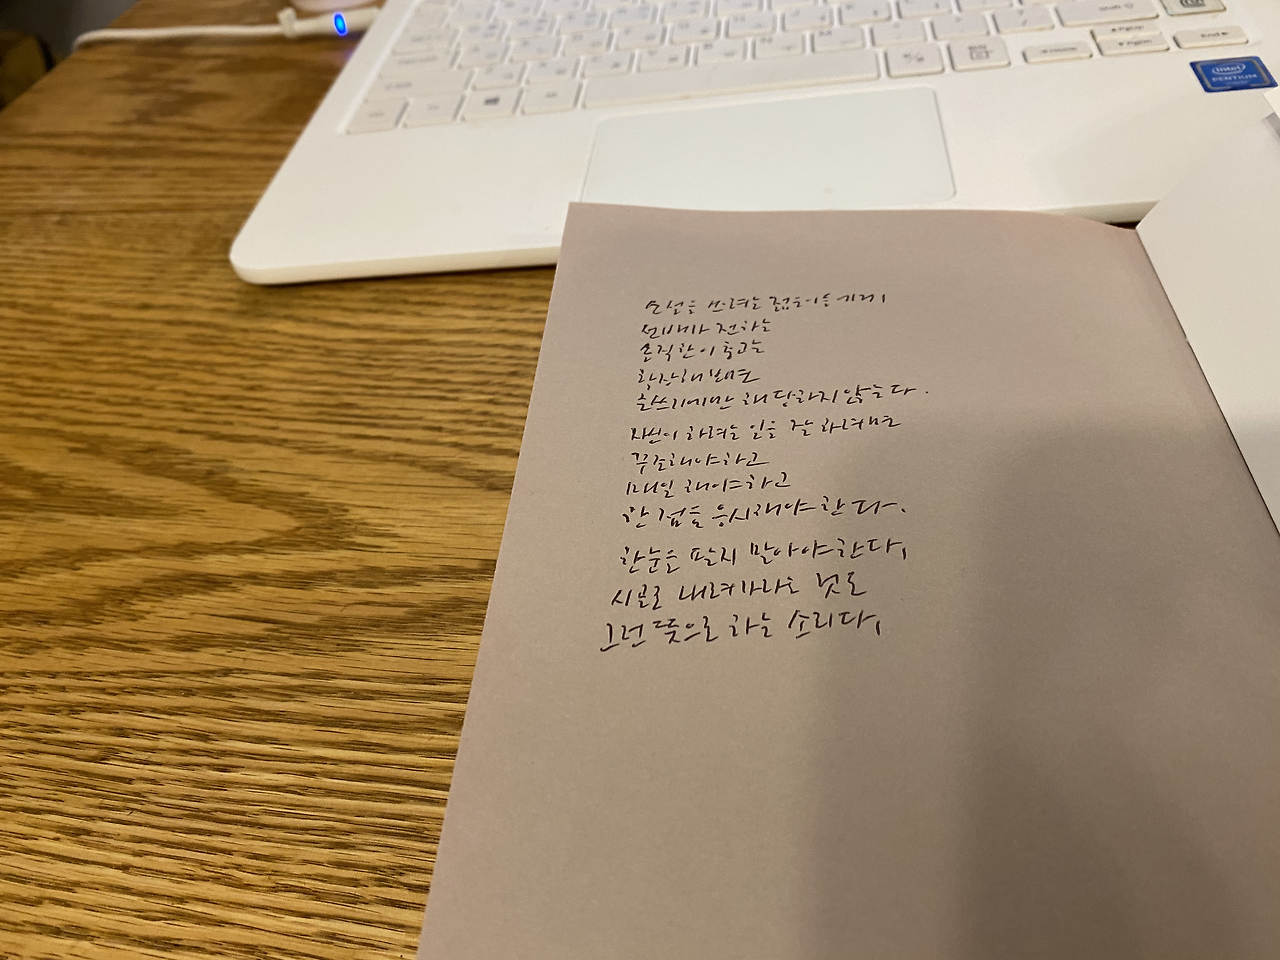 intel
PENTIUM
소설을 쓰려는 젊은이들에게
선배가 전하는
솔직한 이 충고는
확장해 보면
글쓰기에만 해당하지 않는다.
자신이 하려는 일을 잘 하려면
꾸준해야하고
매일 해야하고
한 점을 응시해야 한다.
한눈을 팔지 말아야 한다.
시골로 내려가라는 것도
그런 뜻으로 하는 소리다.